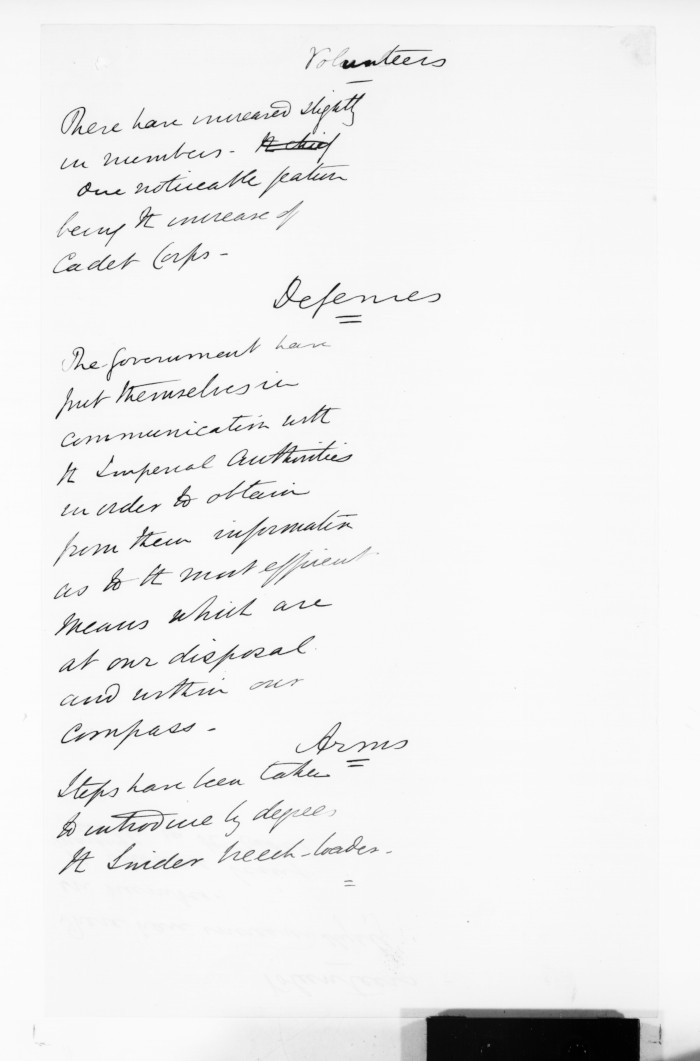 Volunteers
There have increased slightly
in numbers - the chief
One noticeable feature
being the increase of
Cadet Corps -
Defences
The Government have
put themselves in
communication with
the Imperial Authorities
in order to obtain
from them information
as to the most efficient
means which are
at our disposal
and within our
compass -
Arms
Steps have been taken
to introduce by degrees
the Snider breech-loader -